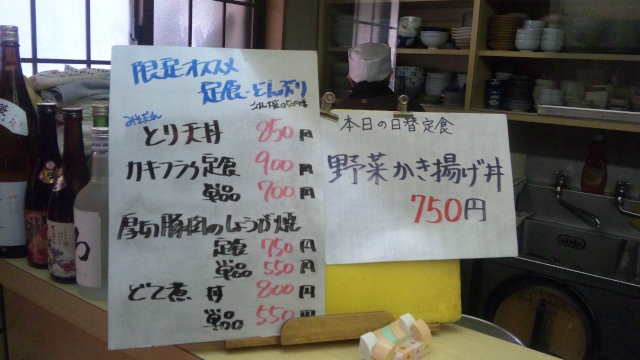 限定オススメ
定食・どんぶり
みそだれ
とり天丼 850円
カキフライ定食 900円
単品 700円
厚切豚肉のしょうが焼
定食 750円
単品 550円
どて煮 丼 800円
単品 550円
本日の日替定食
野菜かき揚げ丼
750円